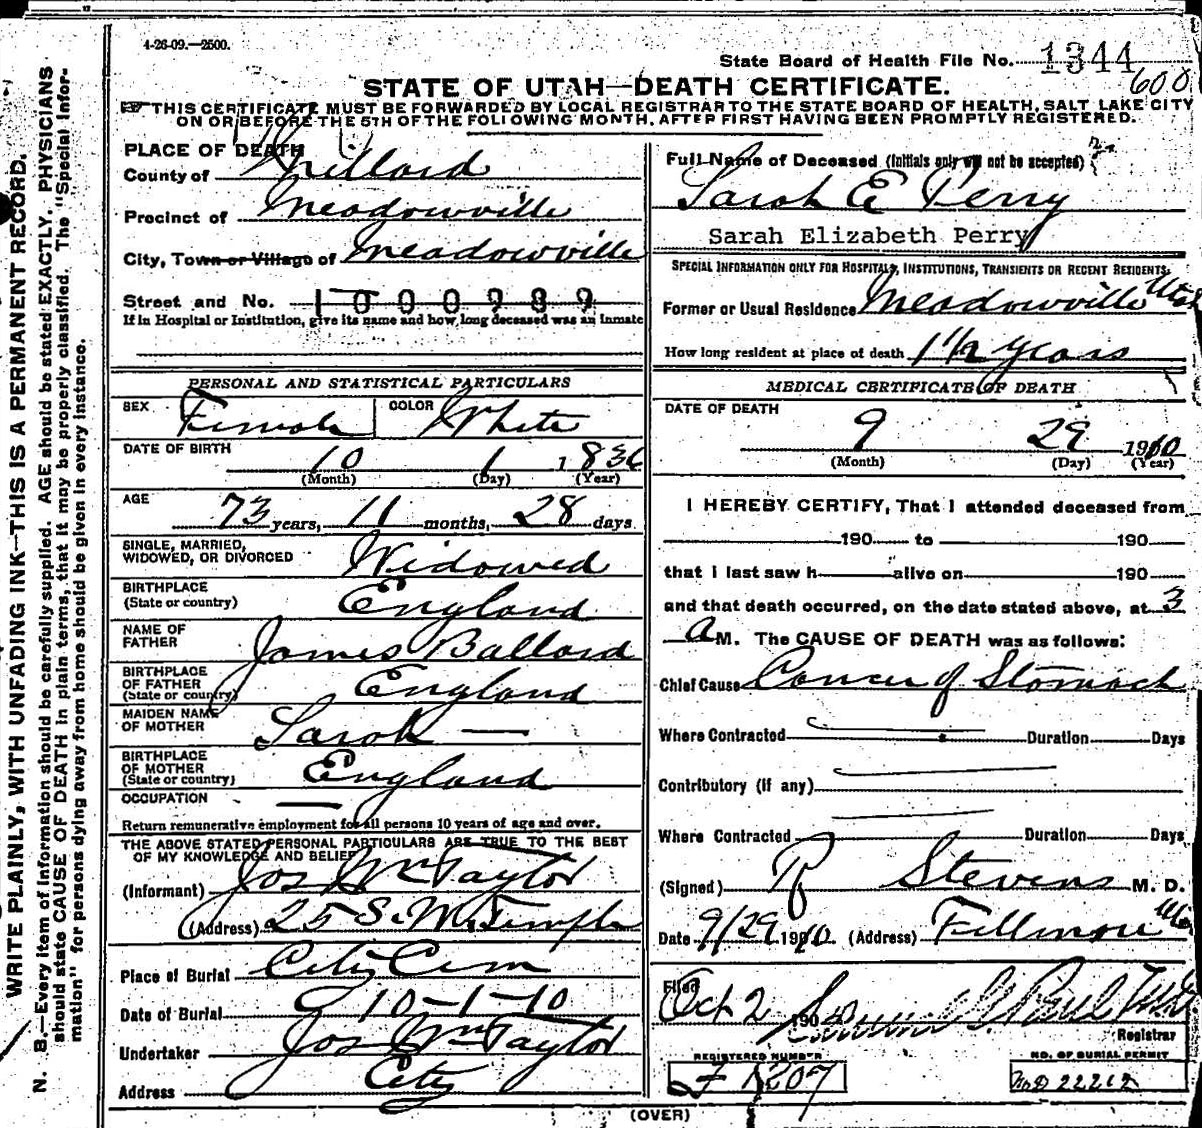 4-26-09.—2500.
State Board of Health File No. 1344
600
STATE OF UTAH—DEATH CERTIFICATE.
THIS CERTIFICATE MUST BE FORWARDED BY LOCAL REGISTRAR TO THE STATE BOARD OF HEALTH, SALT LAKE CITY
ON OR BEFORE THE 5TH OF THE FOLLOWING MONTH, AFTER FIRST HAVING BEEN PROMPTLY REGISTERED.
WRITE PLAINLY, WITH UNFADING INK—THIS IS A PERMANENT RECORD.
N. B.—Every item of information should be carefully supplied. AGE should be stated EXACTLY. PHYSICIANS
should state CAUSE OF DEATH in plain terms, that it may be properly classified. The "Special Infor-
mation" for persons dying away from home should be given in every instance.
PLACE OF DEATH
County of Millard
Precinct of Meadowville
City, Town or Village of Meadowville
Street and No. 1000989
If in Hospital or Institution, give its name and how long deceased was an inmate
PERSONAL AND STATISTICAL PARTICULARS
SEX Female COLOR White
DATE OF BIRTH
10 1 1836
(Month) (Day) (Year)
AGE
73 years, 11 months, 28 days
SINGLE, MARRIED,
WIDOWED, OR DIVORCED Widowed
BIRTHPLACE
(State or country) England
NAME OF
FATHER James Ballard
BIRTHPLACE
OF FATHER
(State or country) England
MAIDEN NAME
OF MOTHER Sarah —
BIRTHPLACE
OF MOTHER
(State or country) England
OCCUPATION —
Return remunerative employment for all persons 10 years of age and over.
THE ABOVE STATED PERSONAL PARTICULARS ARE TRUE TO THE BEST
OF MY KNOWLEDGE AND BELIEF
(Informant) Jos Wm Taylor
(Address) 25 S. W. Temple
Place of Burial City Cem
Date of Burial 10-1-10
Undertaker Jos Wm Taylor
Address City
Full Name of Deceased (Initials only will not be accepted)
Sarah E Perry
Sarah Elizabeth Perry
SPECIAL INFORMATION ONLY FOR HOSPITALS, INSTITUTIONS, TRANSIENTS OR RECENT RESIDENTS.
Former or Usual Residence Meadowville Utah
How long resident at place of death 1 1/2 years
MEDICAL CERTIFICATE OF DEATH
DATE OF DEATH
9 29 1910
(Month) (Day) (Year)
I HEREBY CERTIFY, That I attended deceased from
190 to 190
that I last saw h alive on 190
and that death occurred, on the date stated above, at 3
A M. The CAUSE OF DEATH was as follows:
Chief Cause Cancer of Stomach
Where Contracted Duration Days
Contributory (if any)
Where Contracted Duration Days
(Signed) Stevens M. D.
Date 9/29 1910 (Address) Fillmore Utah
Filed
Oct 2 190
Registrar
REGISTERED NUMBER
1207
NO. OF BURIAL PERMIT
22212
(OVER)